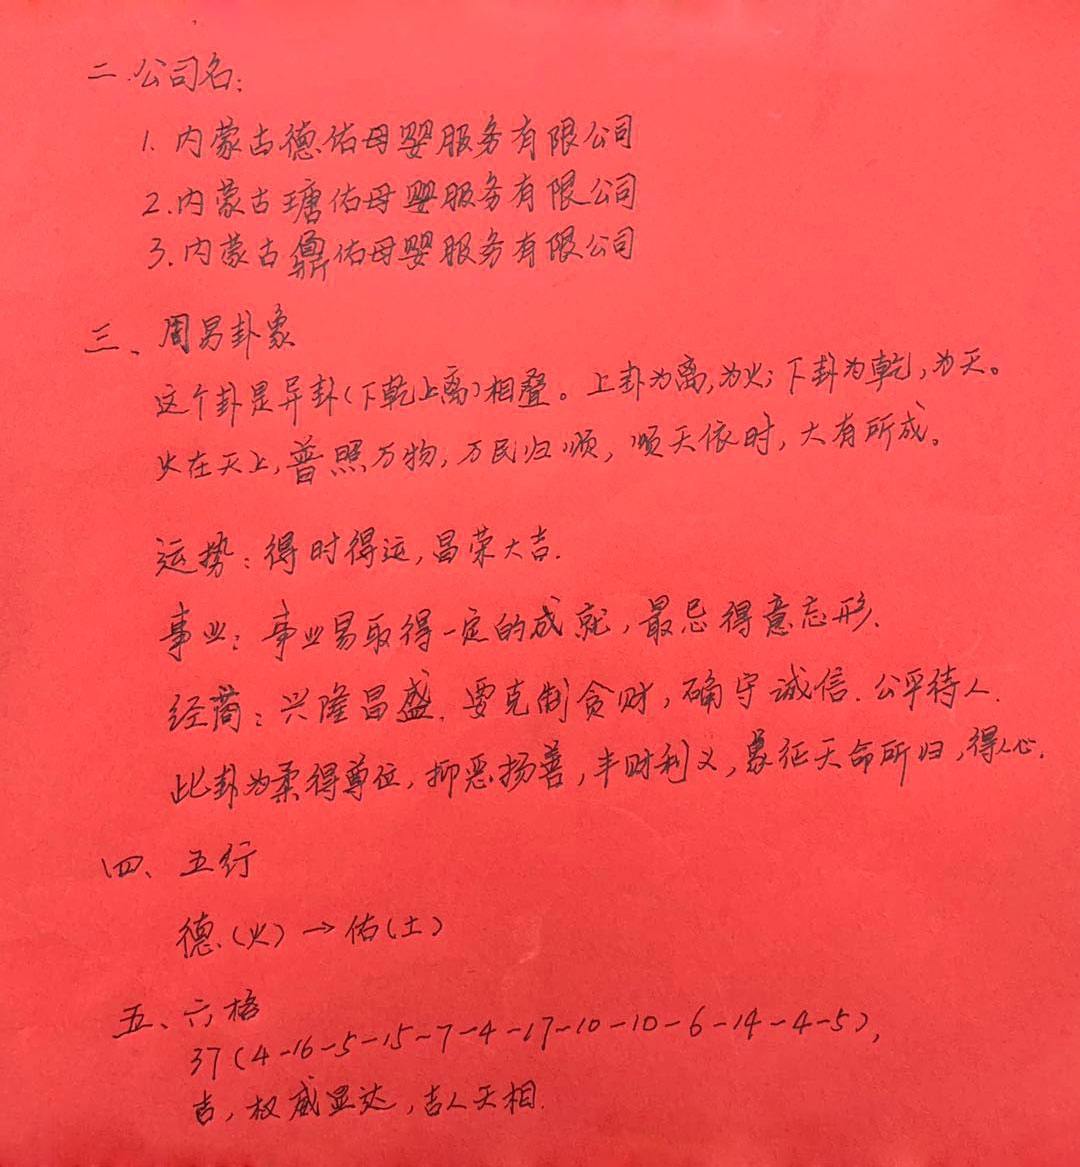 二.公司名:
1.内蒙古德佑母婴服务有限公司
2.内蒙古瑭佑母婴服务有限公司
3.内蒙古鼐佑母婴服务有限公司
三、周易卦象
这个卦是异卦(下乾上离)相叠。上卦为离,为火;下卦为乾,为天。
火在天上,普照万物,万民归顺,顺天依时,大有所成。
运势:得时得运,昌荣大吉.
事业:事业易取得一定的成就,最忌得意忘形.
经商:兴隆昌盛.要克制贪财,确守诚信.公平待人.
此卦为柔得尊位,抑恶扬善,丰财利义,象征天命所归,得人心.
四、五行
德(火)→佑(土)
五、六格
37(4-16-5-15-7-4-17-10-10-6-14-4-5),
吉,权威显达,吉人天相.